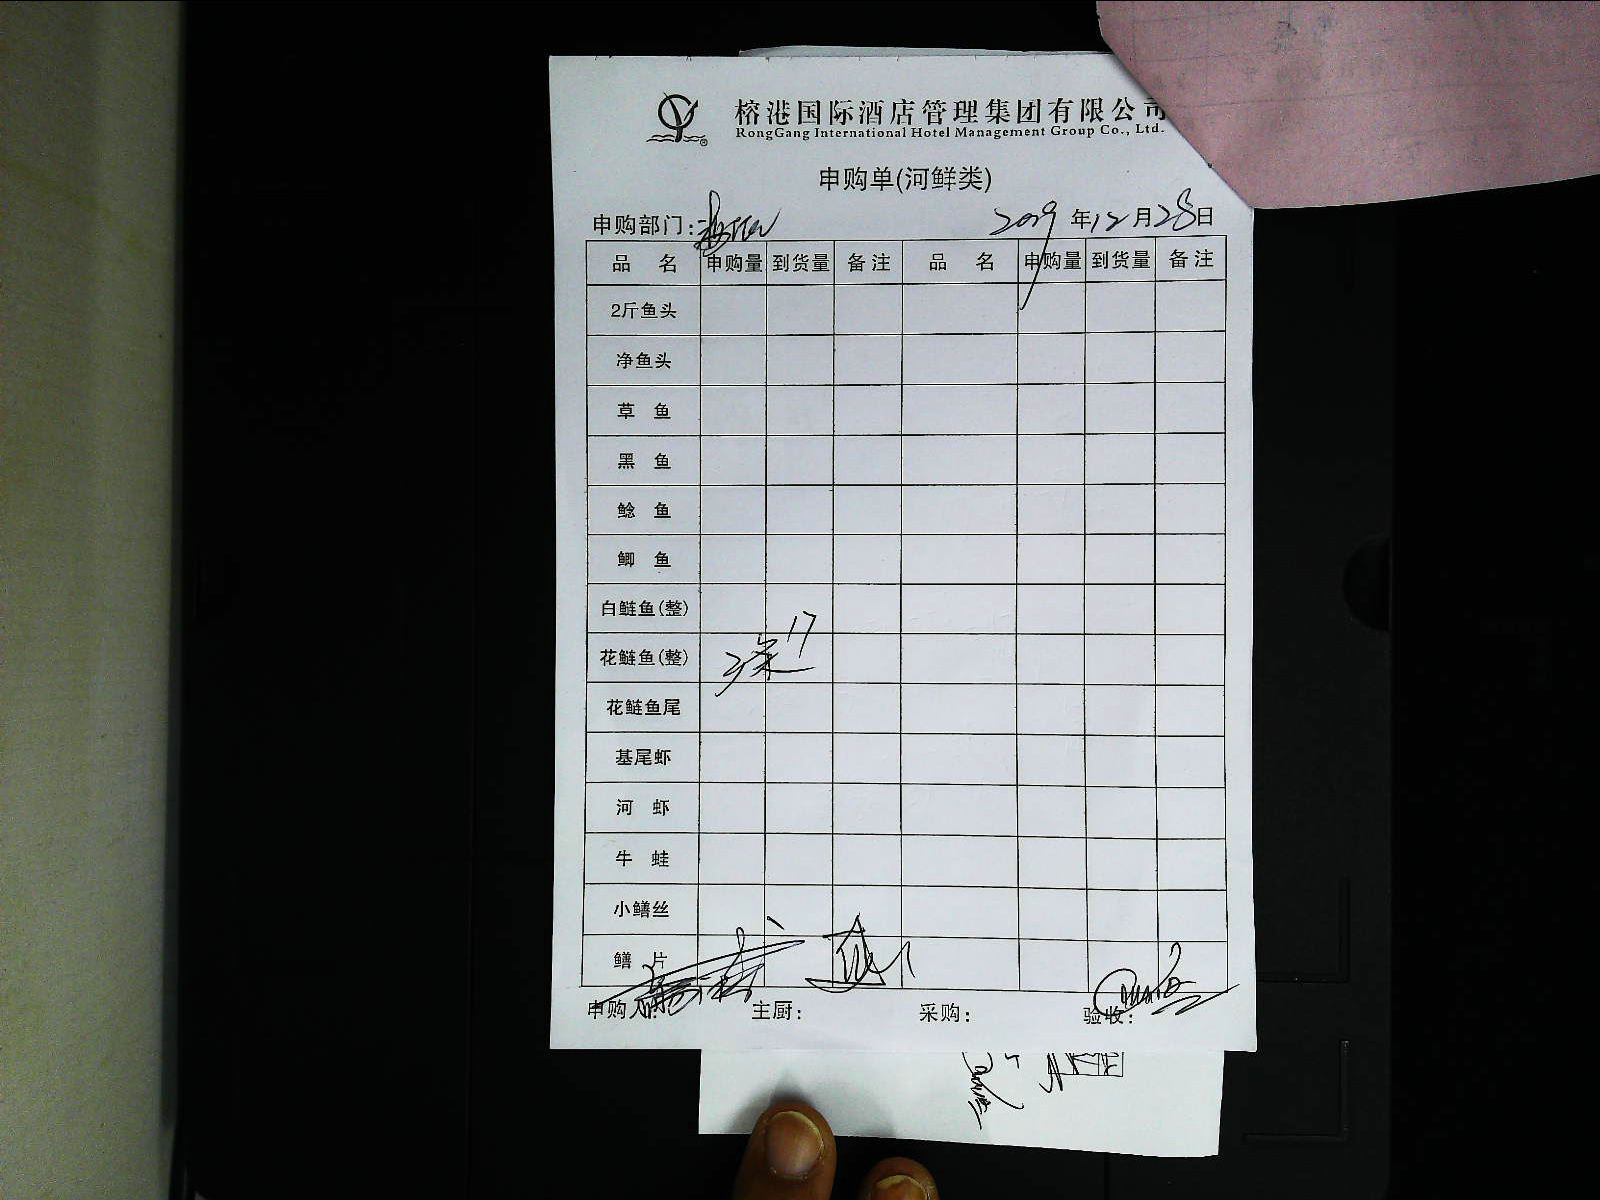 榕港国际酒店管理集团有限公司
RongGang International Hotel Management Group Co., Ltd.
申购单(河鲜类)
申购部门: 2019年12月28日
品名 申购量 到货量 备注 品名 申购量 到货量 备注
2斤鱼头
净鱼头
草鱼
黑鱼
鲶鱼
鲫鱼
白鲢鱼(整)
花鲢鱼(整) 17
花鲢鱼尾
基尾虾
河虾
牛蛙
小鳝丝
鳝片
申购人: 主厨: 采购: 验收: